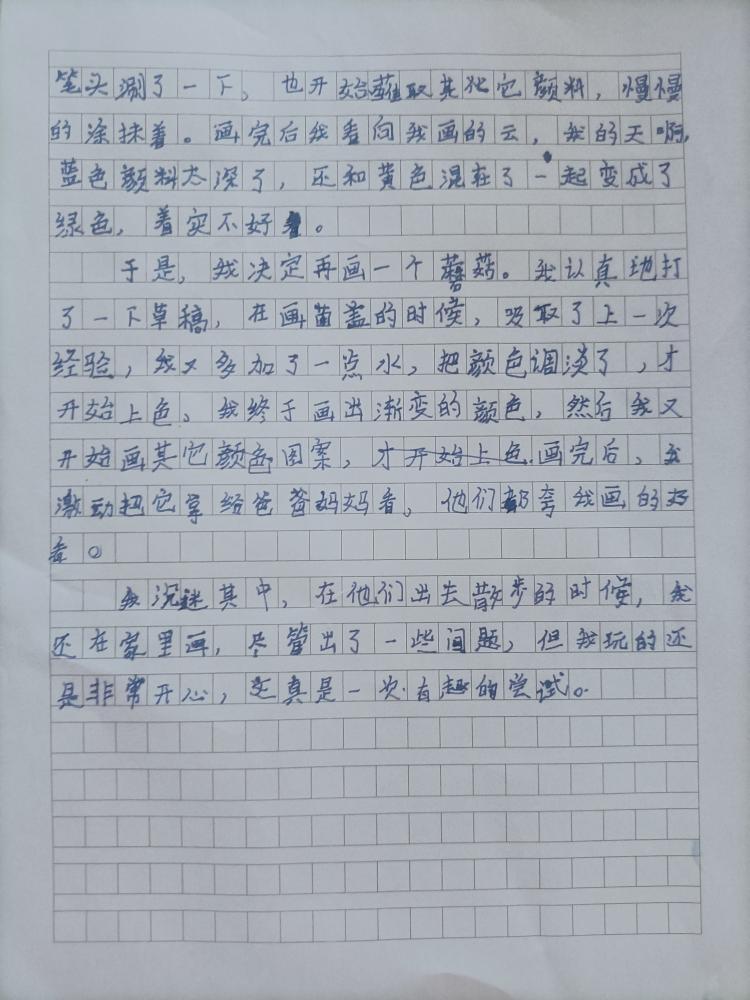 笔头涮了一下，也开始蘸取其他它颜料，慢慢
的涂抹着。画完后我看向我画的云，我的天啊，
蓝色颜料太深了，还和黄色混在了一起变成了
绿色，着实不好看。
于是，我决定再画一个蘑菇。我认真地打
了一下草稿，在画菌盖的时候，吸取了上一次
经验，我又多加了一点水，把颜色调淡了，才
开始上色。我终于画出渐变的颜色，然后我又
开始画其它颜色图案，才开始上色画完后，我
激动把它拿给爸爸妈妈看。他们都夸我画的好
看。
我沉迷其中，在他们出去散步的时候，我
还在家里画，尽管出了一些问题，但我玩的还
是非常开心，这真是一次有趣的尝试。